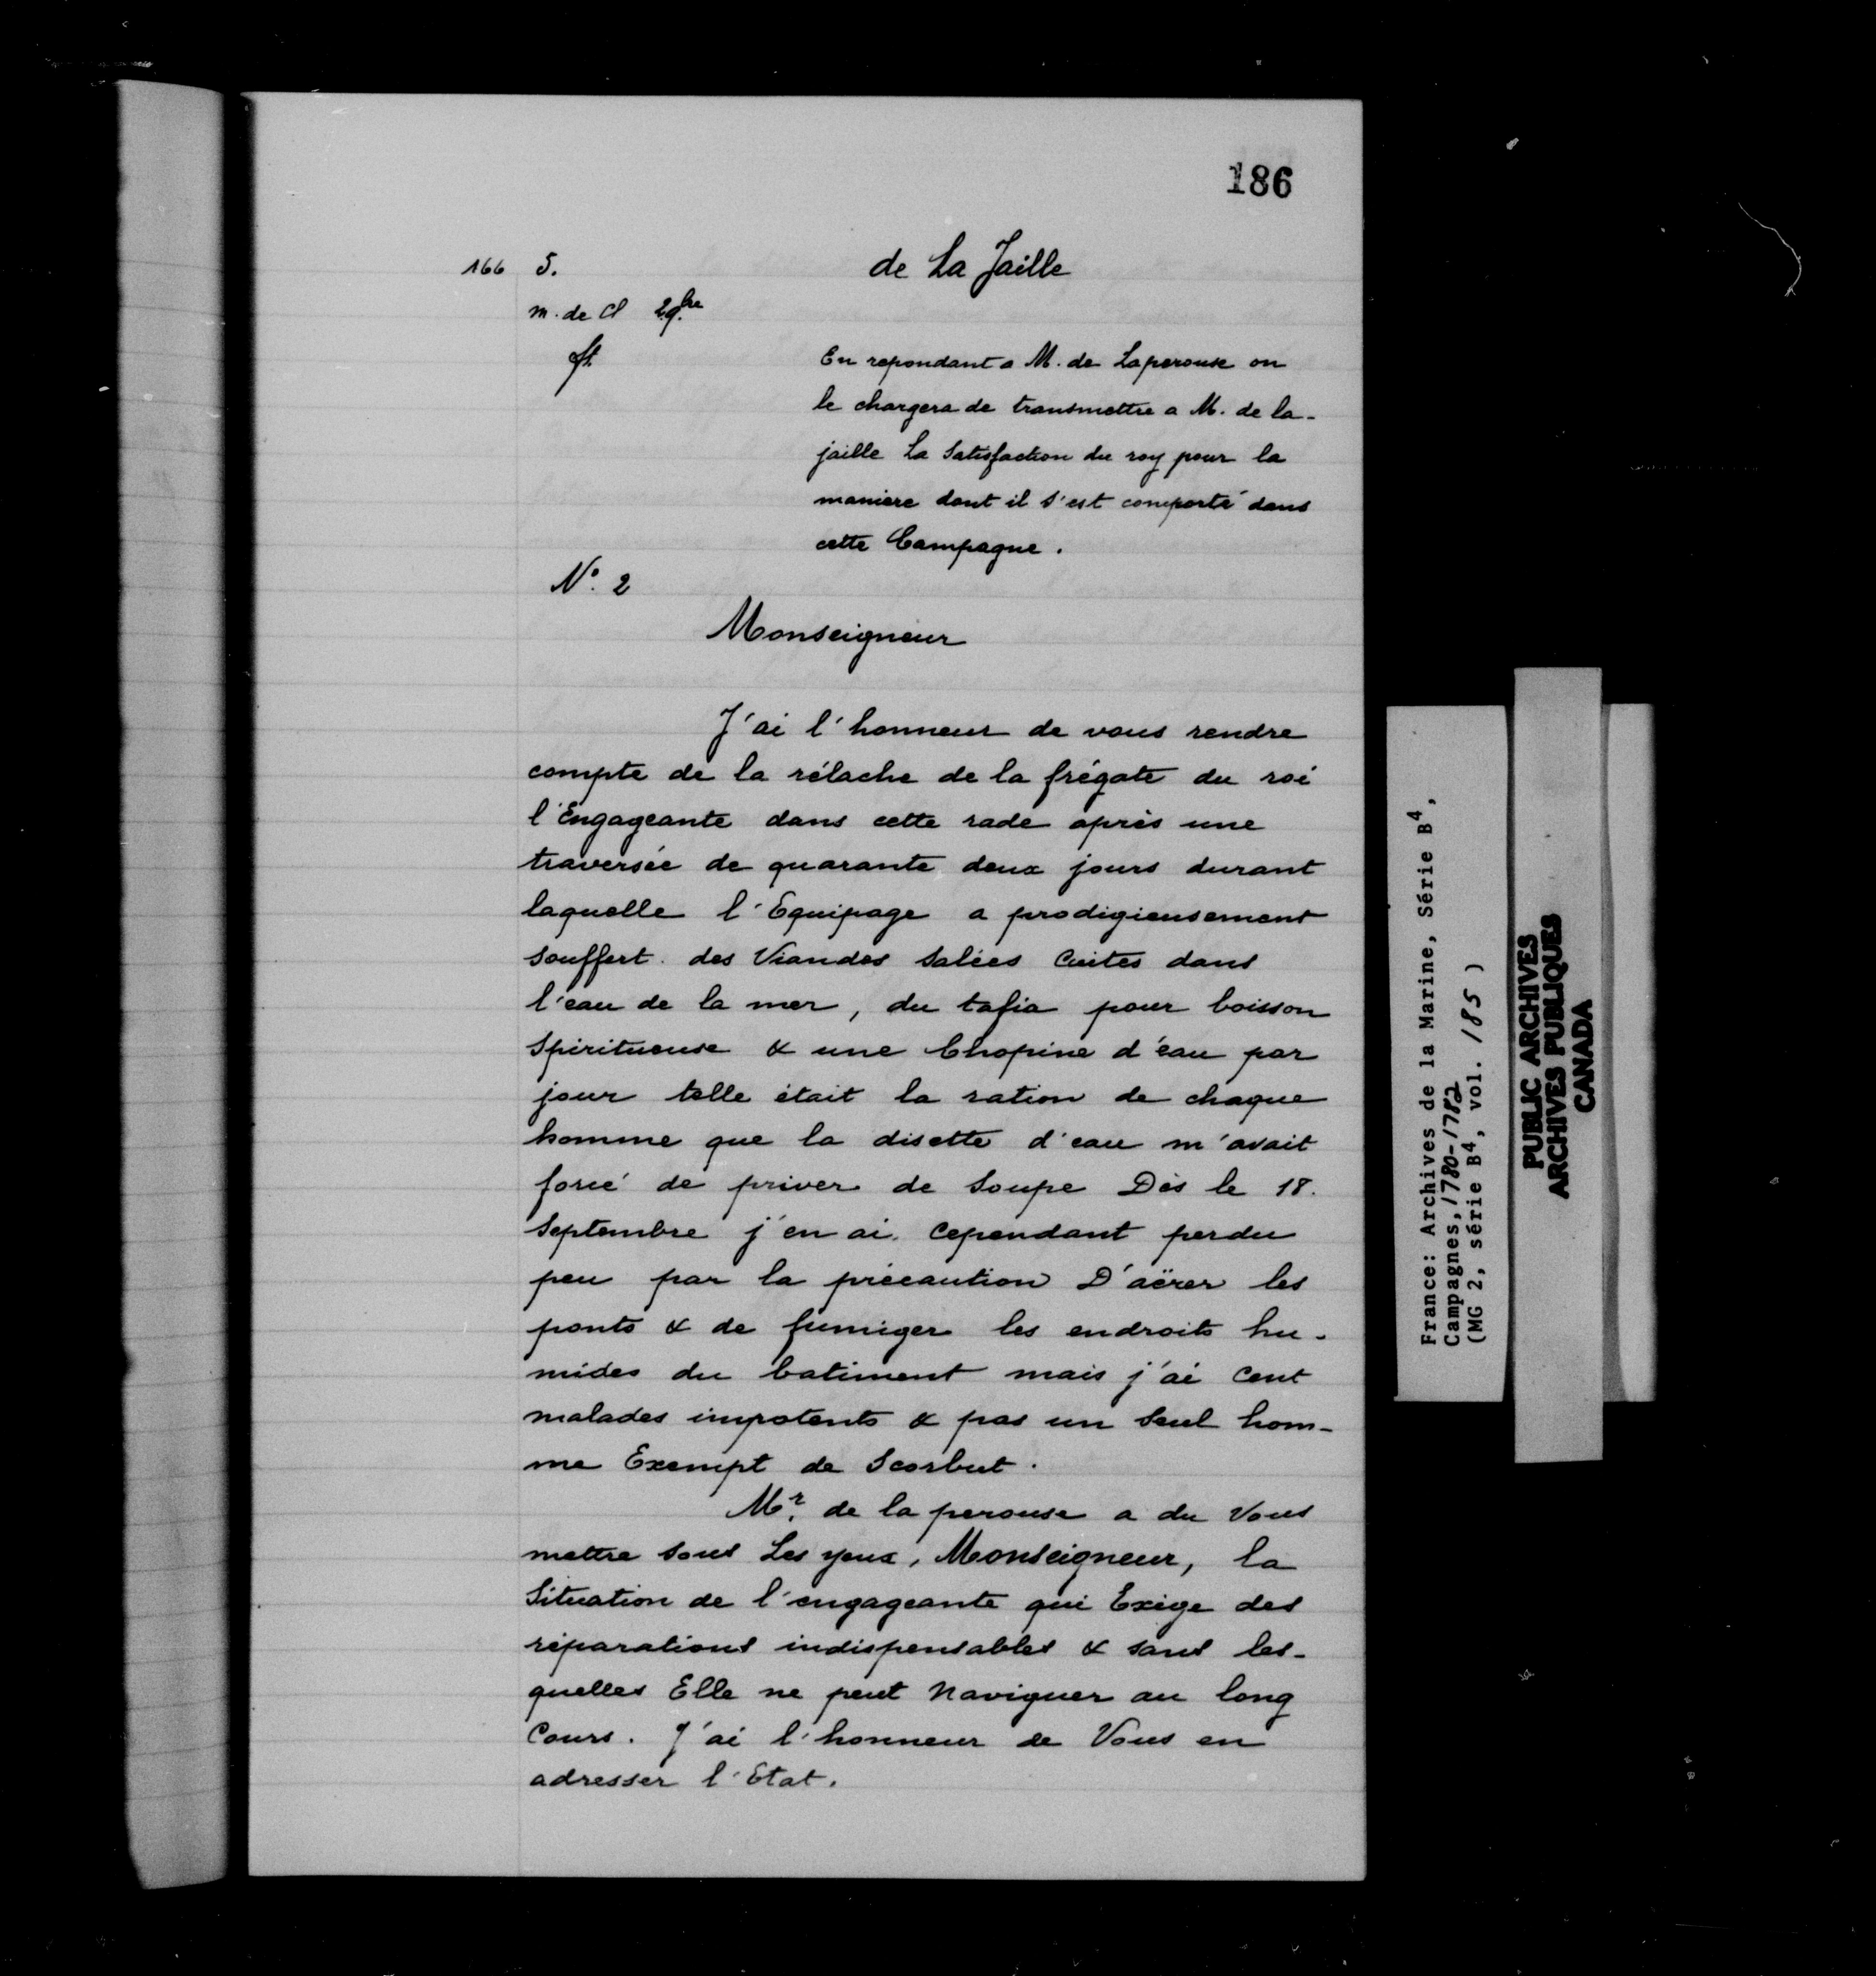 186
166 5. de La Jaille
m. de Cl 29.bre
ft.
En repondant a M. de Laperouse on
le chargera de transmettre a M. de la-
jaille La Satisfaction du roy pour la
maniere dont il s'est comporté dans
cette Campagne.
N.° 2
Monseigneur
J'ai l'honneur de vous rendre
compte de la rélache de la frégate du roi
l'Engageante dans cette rade après une
traversée de quarante deux jours durant
laquelle l'Equipage a prodigieusement
souffert. des Viandes salées Cuites dans
l'eau de la mer, du tafia pour boisson
Spiritueuse & une Chopine d'eau par
jour telle était la ration de chaque
homme que la disette d'eau m'avait
forcé de priver de Soupe Dès le 18.
Septembre j'en ai. Cependant perdu
peu par la précaution D'aërer les
ponts & de fumiger les endroits hu-
mides du batiment mais j'ai Cent
malades impotents & pas un Seul hom-
me Exempt de Scorbut.
Mr. de la perouse a du Vous
mettre sous Les yeux, Monseigneur, la
Situation de l'engageante qui Exige des
réparations indispensables & sans les-
quelles Elle ne peut Naviguer au long
Cours. J'ai l'honneur de Vous en
adresser l'Etat.
France: Archives de la Marine, Série B4,
Campagnes, 1780-1782
(MG 2, série B4, vol. 185)
PUBLIC ARCHIVES
ARCHIVES PUBLIQUES
CANADA